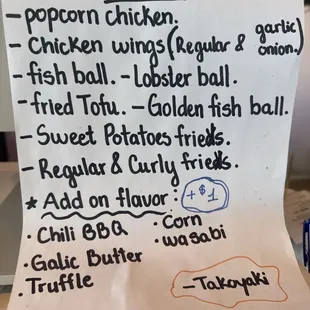 - popcorn chicken.
- Chicken wings (Regular & garlic onion.)
- fish ball. - Lobster ball.
- fried Tofu. - Golden fish ball.
- Sweet Potatoes frieds.
- Regular & Curly frieds.
* Add on flavor : +$1
· Chili BBQ · Corn
· Galic Butter · wasabi
· Truffle
- Takoyaki